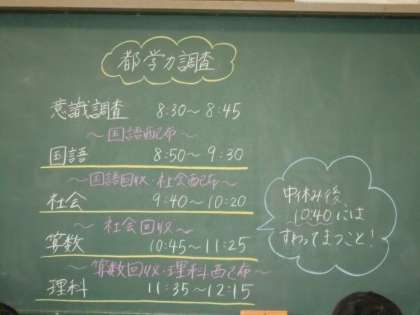 都学力調査
意識調査 8:30～8:45
～国語配布～
国語 8:50～9:30
～国語回収・社会配布～
社会 9:40～10:20
～社会回収～
算数 10:45～11:25
～算数回収・理科配布～
理科 11:35～12:15
中休み後、
10:40には
すわってまつこと！